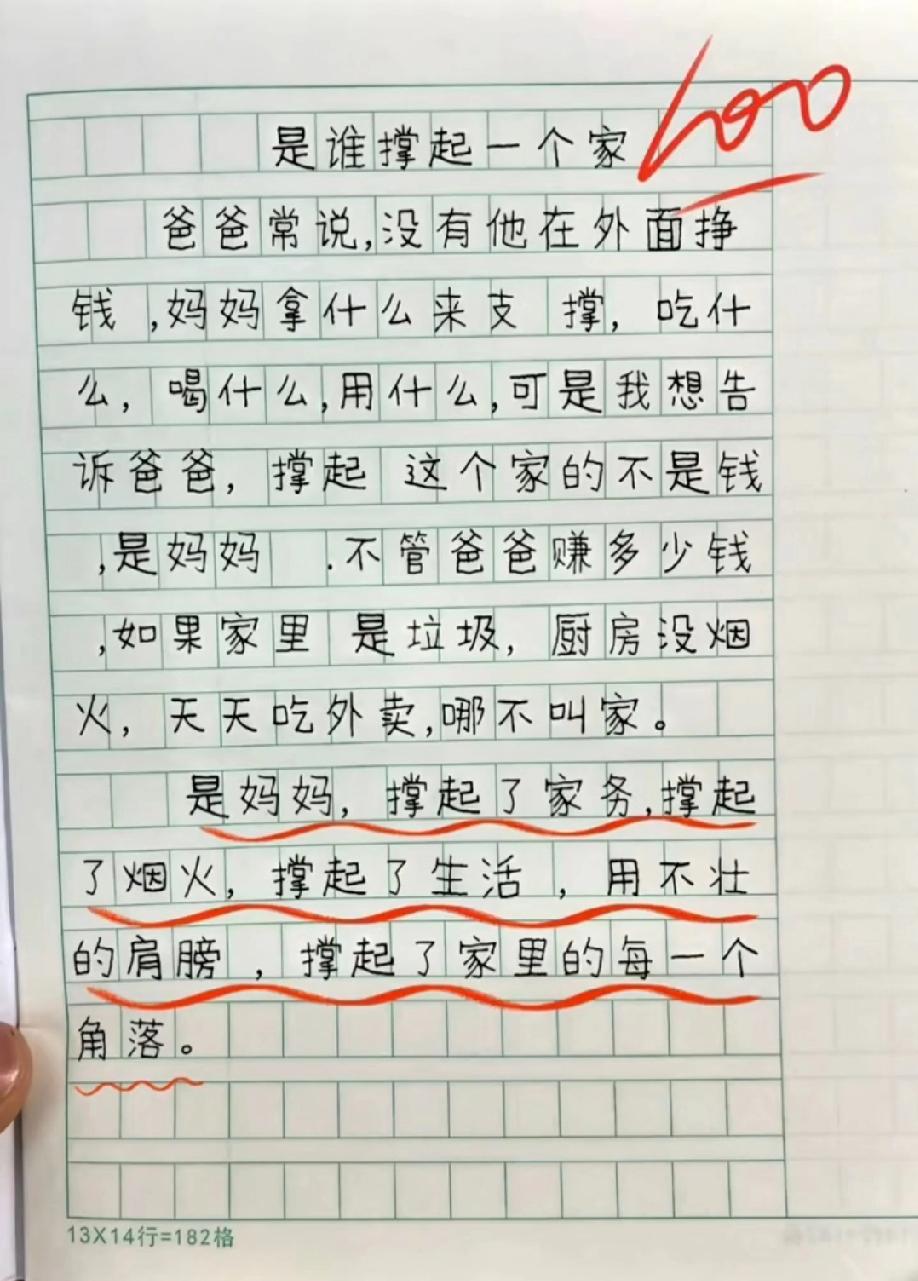 100
是谁撑起一个家
爸爸常说,没有他在外面挣
钱,妈妈拿什么来支撑,吃什
么,喝什么,用什么,可是我想告
诉爸爸,撑起这个家的不是钱
,是妈妈.不管爸爸赚多少钱
,如果家里是垃圾,厨房没烟
火,天天吃外卖,哪不叫家。
是妈妈,撑起了家务,撑起
了烟火,撑起了生活,用不壮
的肩膀,撑起了家里的每一个
角落。
13X14行=182格